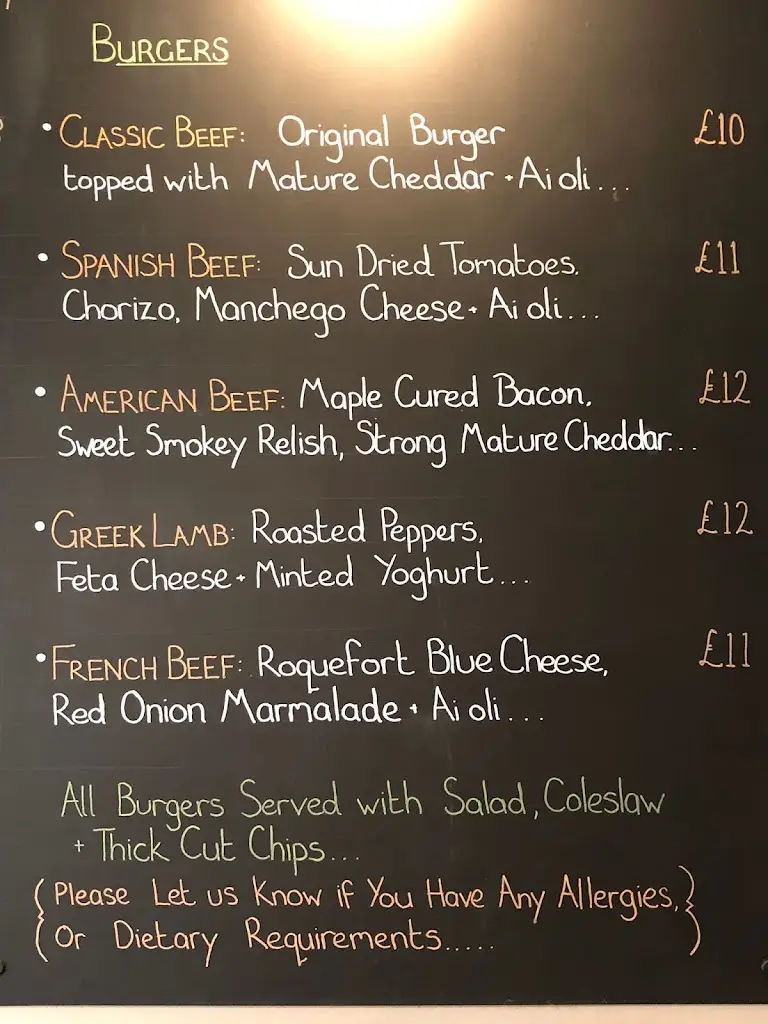 BURGERS
• CLASSIC BEEF: Original Burger £10
topped with Mature Cheddar + Aioli...
• SPANISH BEEF: Sun Dried Tomatoes, £11
Chorizo, Manchego Cheese + Aioli...
• AMERICAN BEEF: Maple Cured Bacon, £12
Sweet Smokey Relish, Strong Mature Cheddar...
• GREEK LAMB: Roasted Peppers, £12
Feta Cheese + Minted Yoghurt...
• FRENCH BEEF: Roquefort Blue Cheese, £11
Red Onion Marmalade + Aioli...
All Burgers Served with Salad, Coleslaw
+ Thick Cut Chips...
{Please Let us Know if You Have Any Allergies,}
{Or Dietary Requirements.....}